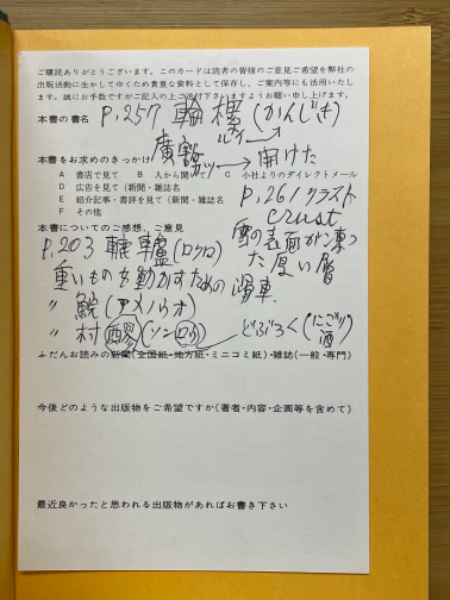 ご購読ありがとうございます。このカードは読者の皆様のご意見ご希望を弊社の
出版活動に生かしてゆくため貴重な資料として保存し、ご案内等にも活用いたし
ます。誠にお手数ですがご記入の上ご送付下さいますようお願い申し上げます。
本書の書名 P.257 輪樏(かんじき)
ルイ
本書をお求めのきっかけ 廣豁 カツ → 開けた
A 書店で見て B 人から聞いて C 小社よりのダイレクトメール
D 広告を見て(新聞・雑誌名
E 紹介記事・書評を見て(新聞・雑誌名
F その他
P.261 クラスト
crust
雪の表面が凍っ
た厚い層
本書についてのご感想、ご意見
P.203 轆轤(ロクロ)
重いものを動かすための滑車.
〃 鯇(アメノウオ)
〃 村醪(ソンロウ) どぶろく(にごり酒)
ふだんお読みの新聞(全国紙・地方紙・ミニコミ紙)・雑誌(一般・専門)
今後どのような出版物をご希望ですか(著者・内容・企画等を含めて)
最近良かったと思われる出版物があればお書き下さい